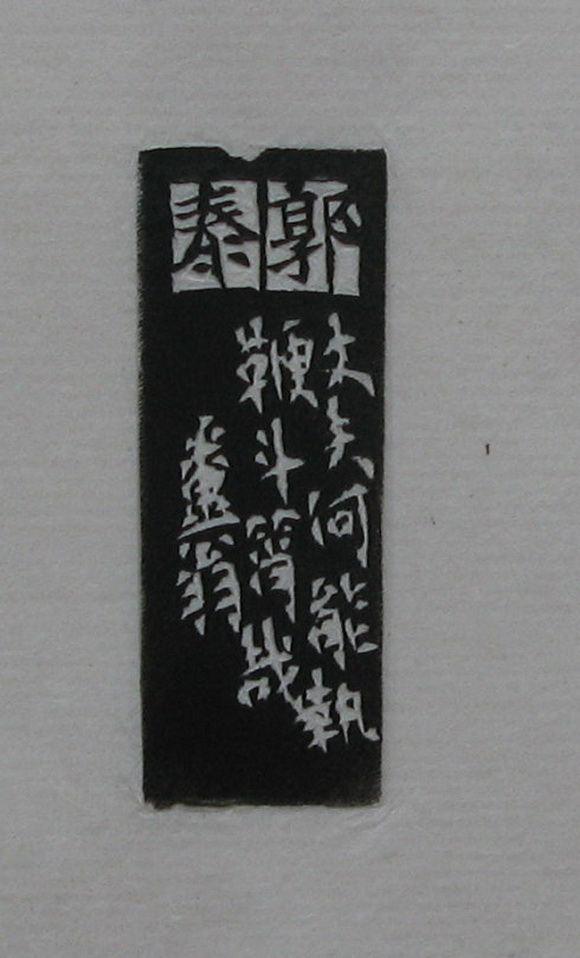 郭泰
丈夫何能執
鞭斗筲哉
翁